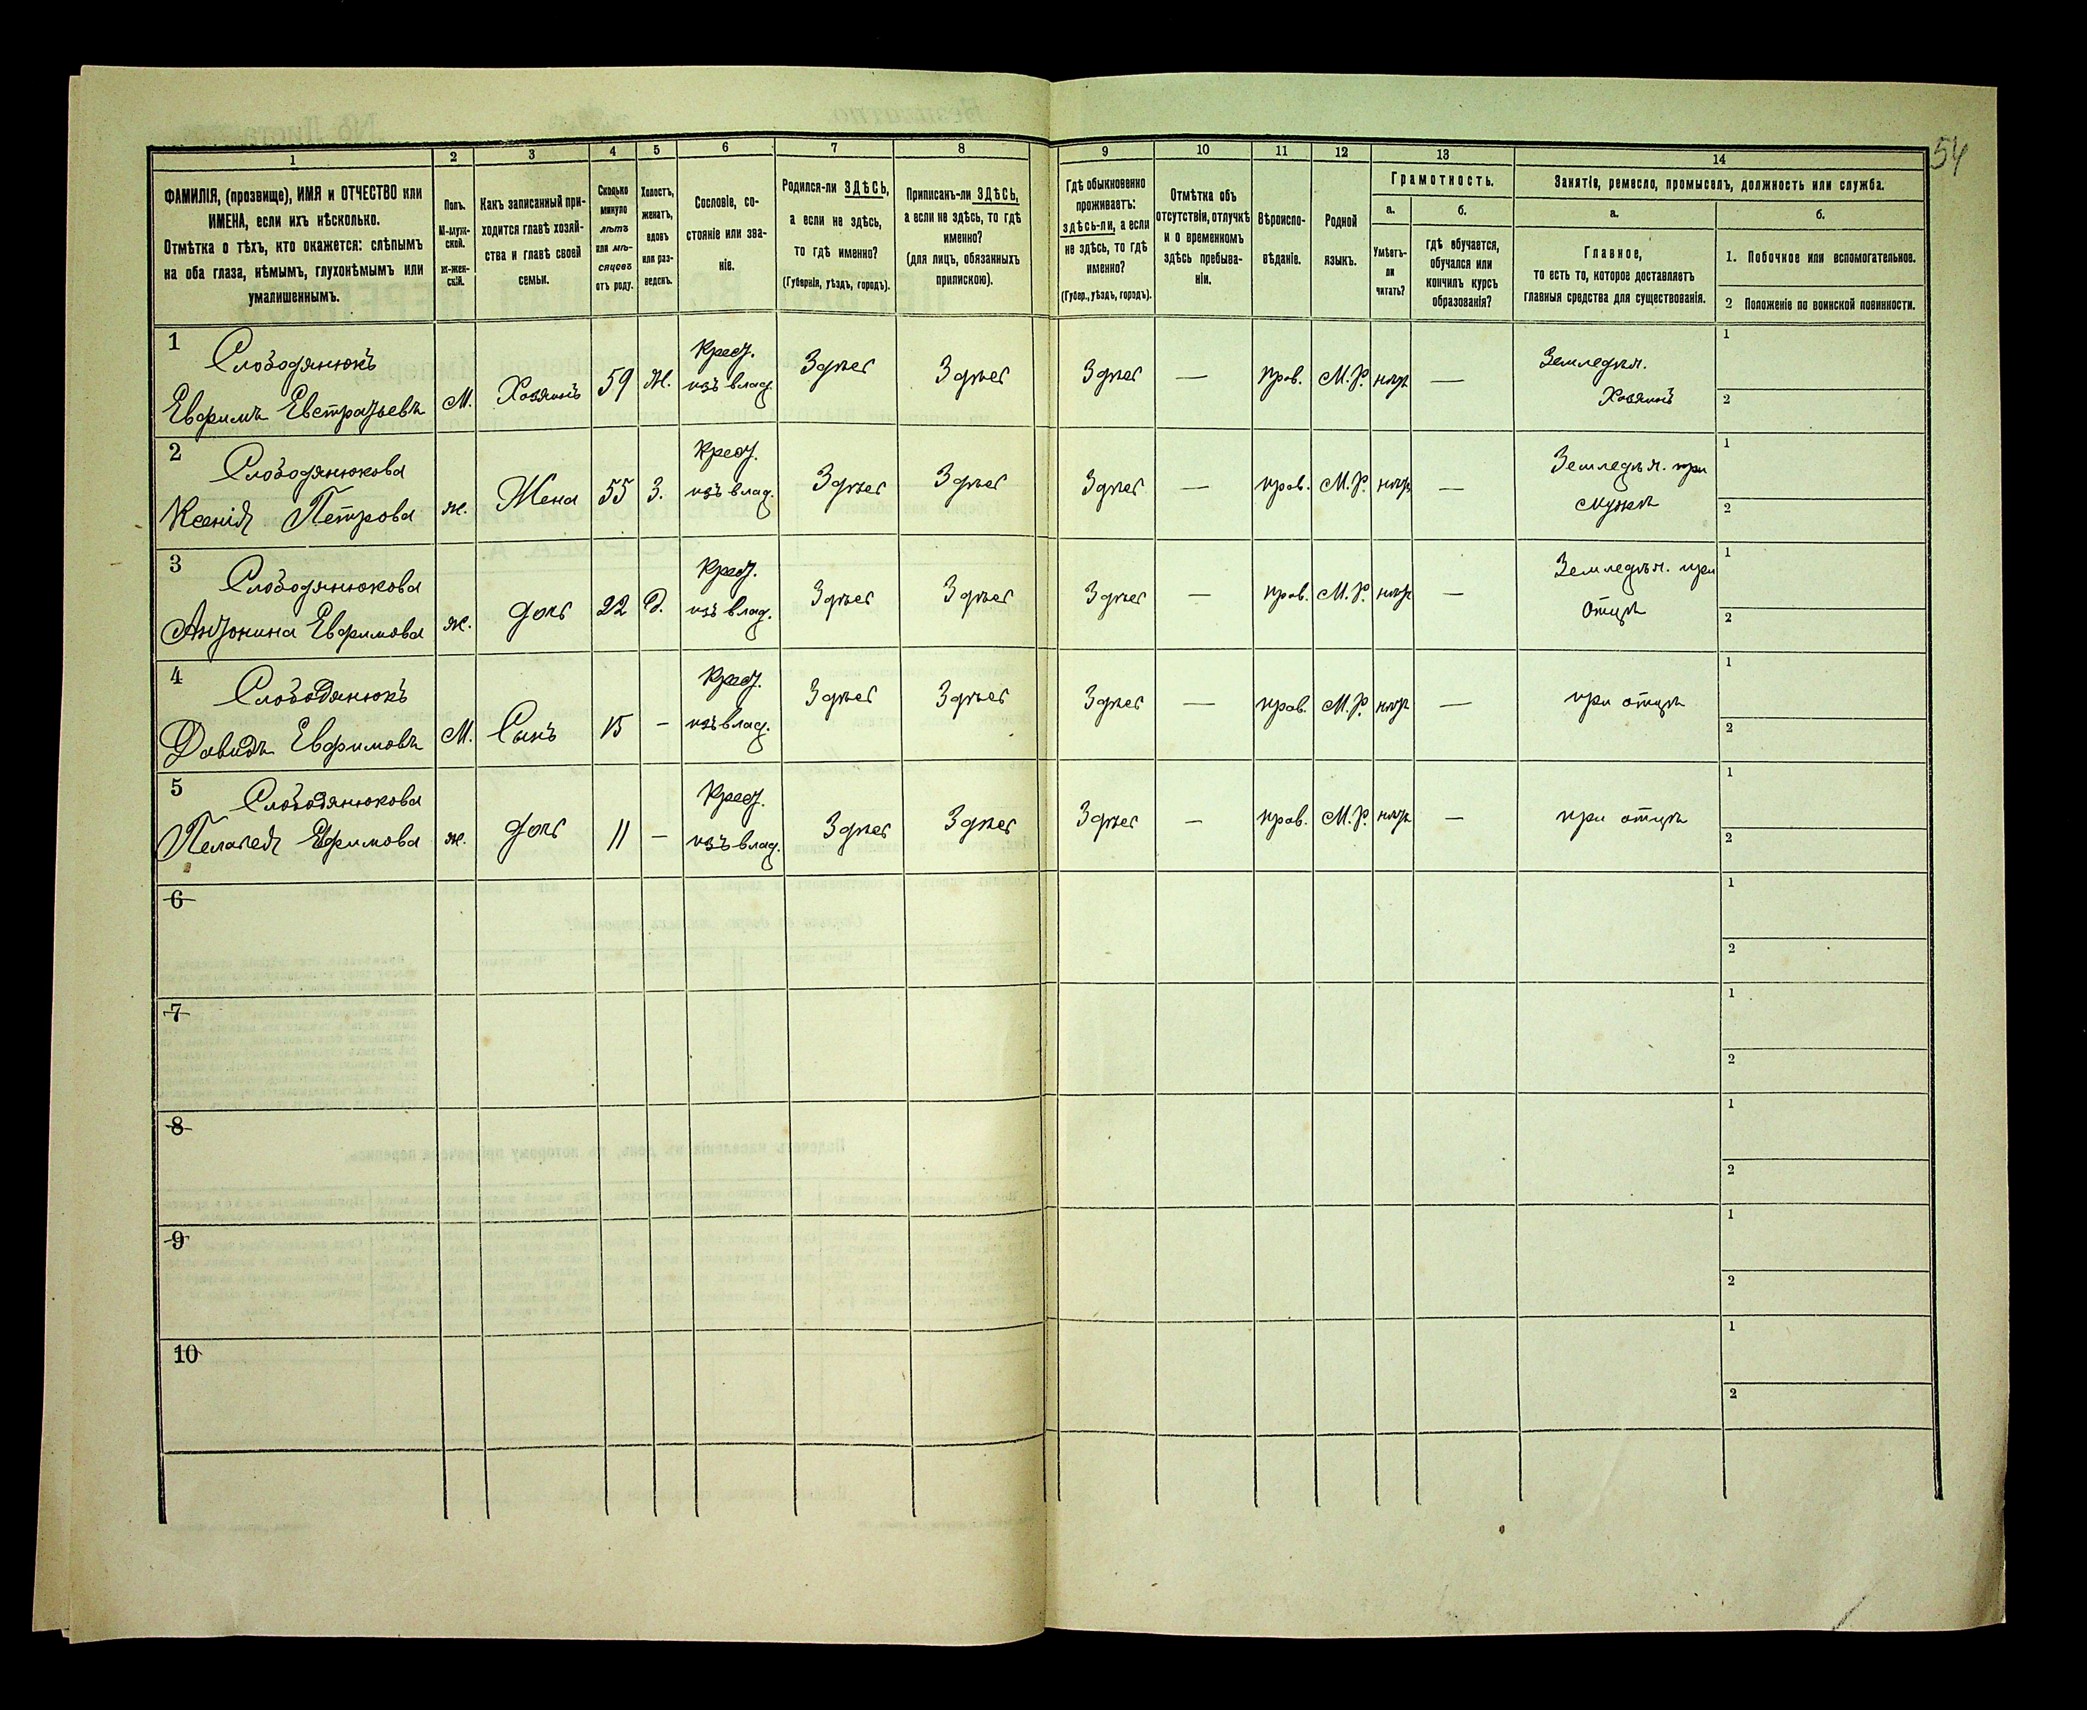 54
1 2 3 4 5 6 7 8 9 10 11 12 13 14
ФАМИЛІЯ, (прозвище), ИМЯ и ОТЧЕСТВО или
ИМЕНА, если ихъ нѣсколько.
Отмѣтка о тѣхъ, кто окажется: слѣпымъ
на оба глаза, нѣмымъ, глухонѣмымъ или
умалишеннымъ.
Полъ.
М-муж-
ской.
ж-жен-
скій.
Какъ записанный при-
ходится главѣ хозяй-
ства и главѣ своей
семьи.
Сколько
минуло
лѣтъ
или мѣ-
сяцевъ
отъ роду.
Холостъ,
женатъ,
вдовъ
или раз-
веденъ.
Сословіе, со-
стояніе или зва-
ніе.
Родился-ли ЗДѢСЬ,
а если не здѣсь,
то гдѣ именно?
(Губернія, уѣздъ, городъ).
Приписанъ-ли ЗДѢСЬ,
а если не здѣсь, то гдѣ
именно?
(для лицъ, обязанныхъ
припискою).
Гдѣ обыкновенно
проживаетъ:
здѣсь-ли, а если
не здѣсь, то гдѣ
именно?
(Губер., уѣздъ, городъ).
Отмѣтка объ
отсутствіи, отлучкѣ
и о временномъ
здѣсь пребыва-
ніи.
Вѣроиспо-
вѣданіе.
Родной
языкъ.
Грамотность.
а.
Умѣетъ-
ли
читать?
б.
гдѣ обучается,
обучался или
кончилъ курсъ
образованія?
Занятіе, ремесло, промыселъ, должность или служба.
а.
Главное,
то есть то, которое доставляетъ
главныя средства для существованія.
б.
1. Побочное или вспомогательное.
2 Положеніе по воинской повинности.
1
Слободянюкъ
Евфимъ Евстратьевъ
М.
Хозяинъ
59
Ж.
Крест.
изъ влад.
Здѣсь
Здѣсь
Здѣсь
—
прав.
М.Р.
нѣтъ
—
Земледѣл.
Хозяинъ
1
2
2
Слободянюкова
Ксенія Петрова
ж.
Жена
55
З.
Крест.
изъ влад.
Здѣсь
Здѣсь
Здѣсь
—
прав.
М.Р.
нѣтъ
—
Земледѣл. при
мужѣ
1
2
3
Слободянюкова
Антонина Евфимова
ж.
дочь
22
Д.
Крест.
изъ влад.
Здѣсь
Здѣсь
Здѣсь
—
прав.
М.Р.
нѣтъ
—
Земледѣл. при
отцѣ
1
2
4
Слободянюкъ
Давидъ Евфимовъ
М.
Сынъ
15
—
Крест.
изъ влад.
Здѣсь
Здѣсь
Здѣсь
—
прав.
М.Р.
нѣтъ
—
при отцѣ
1
2
5
Слободянюкова
Пелагея Евфимова
ж.
дочь
11
—
Крест.
изъ влад.
Здѣсь
Здѣсь
Здѣсь
—
прав.
М.Р.
нѣтъ
—
при отцѣ
1
2
6
1
2
7
1
2
8
1
2
9
1
2
10
1
2